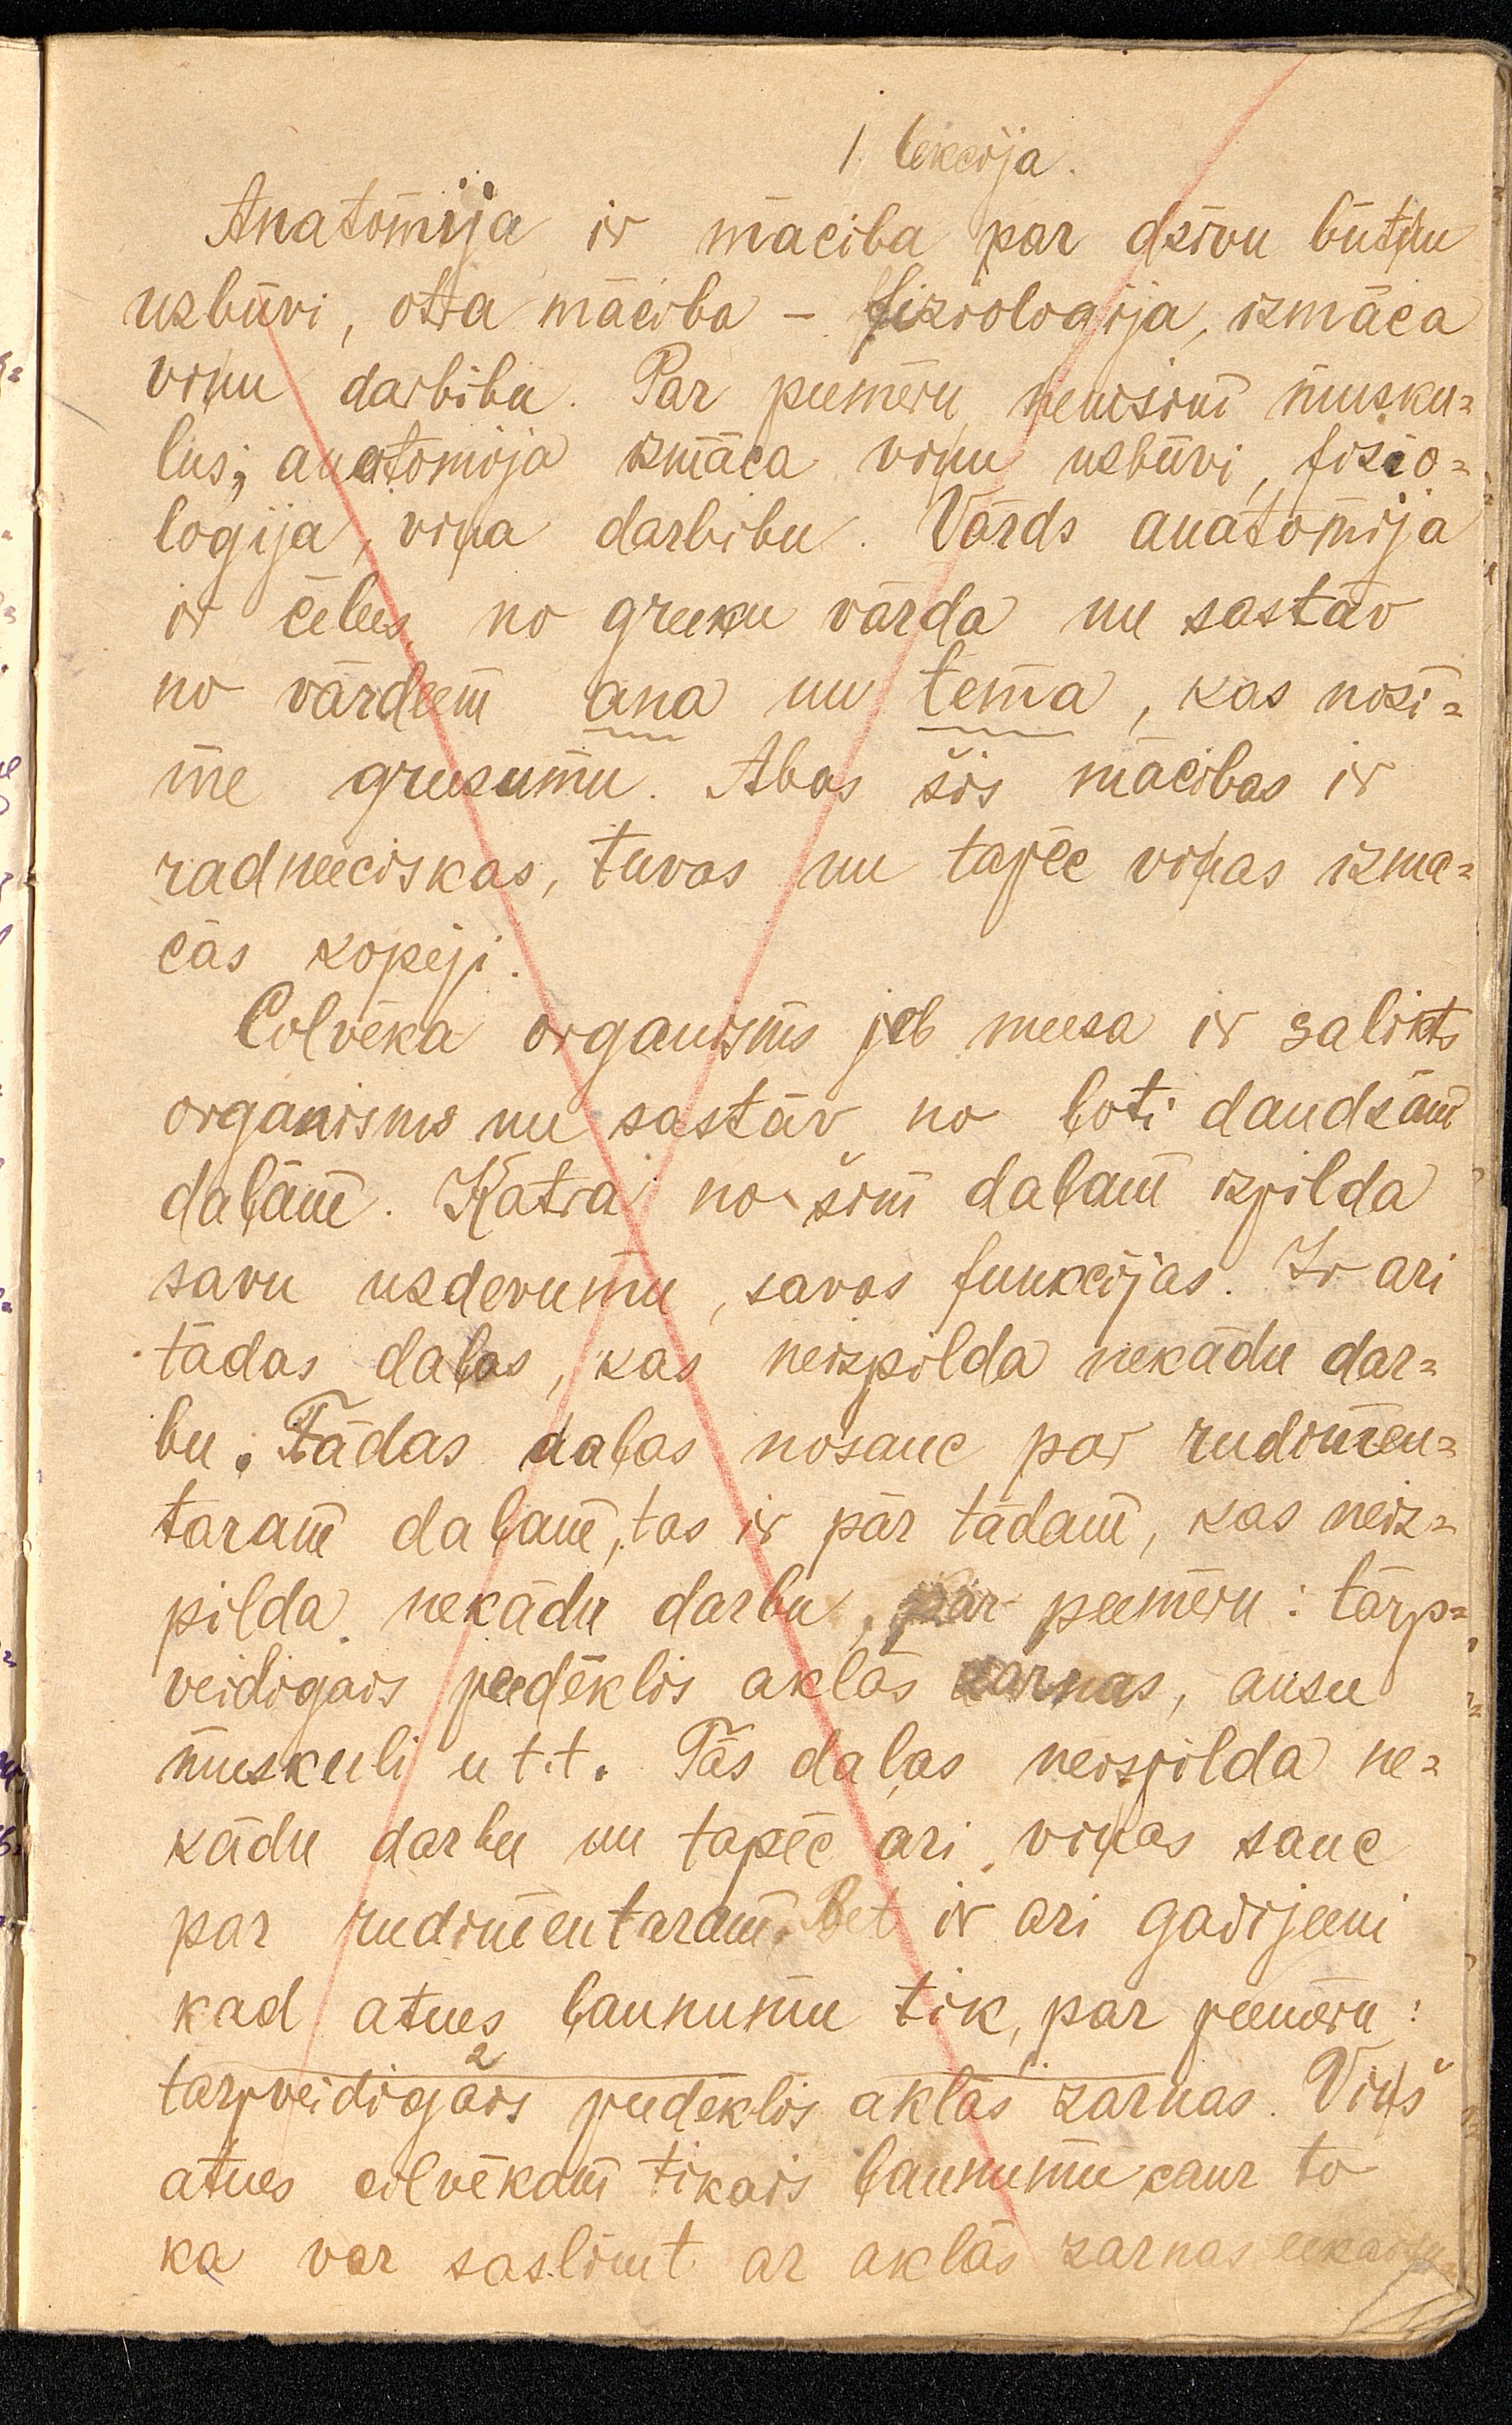 1 lekcija.
Anatomija ir māciba par dzivu būtņu
uzbūvi, otra māciba – fizioloģija, izmāca
viņu darbibu. Par peemēru ņemsim musku=
lus; anatomija izmāca viņu uzbūvi, fizio=
logija, viņa darbibu. Vārds anatomija
ir cēlees no greeku vārda un sastāv
no vārdeem ana un tema, kas nozi=
me greezumu. Abas šis mācibas ir
radneeciskas, tuvas un tapēc viņas izma=
cās kopēji.
Cilvēka organisms jeb meesa ir salikts
organisms un sastāv no ļoti daudzām
daļām. Katra no šim daļam izpilda
savu uzdevumu, savas funkcijas. Ir ari
tādas daļas, kas neizpilda nekādu dar=
bu. Tādas daļas nosauc par rudimen=
taram daļam, tas ir pār tādam, kas neiz=
pilda nekādu darbu, pār peemēru: tārp=
veidigais peedēklis aklās zarnas, ausu
muskuli u t.t. Tās daļas neizpilda ne=
kādu darbu un tapēc ari viņas sauc
par rudimentaram. Bet ir ari gadijeeni
kad atnes ļaunumu tik, par peemēru:
tarpveidigais peedēklis aklās zarnas. Viņš
atnes cilvēkam tikais ļaunumu caur to
ka var saslimt ar aklās zarnas